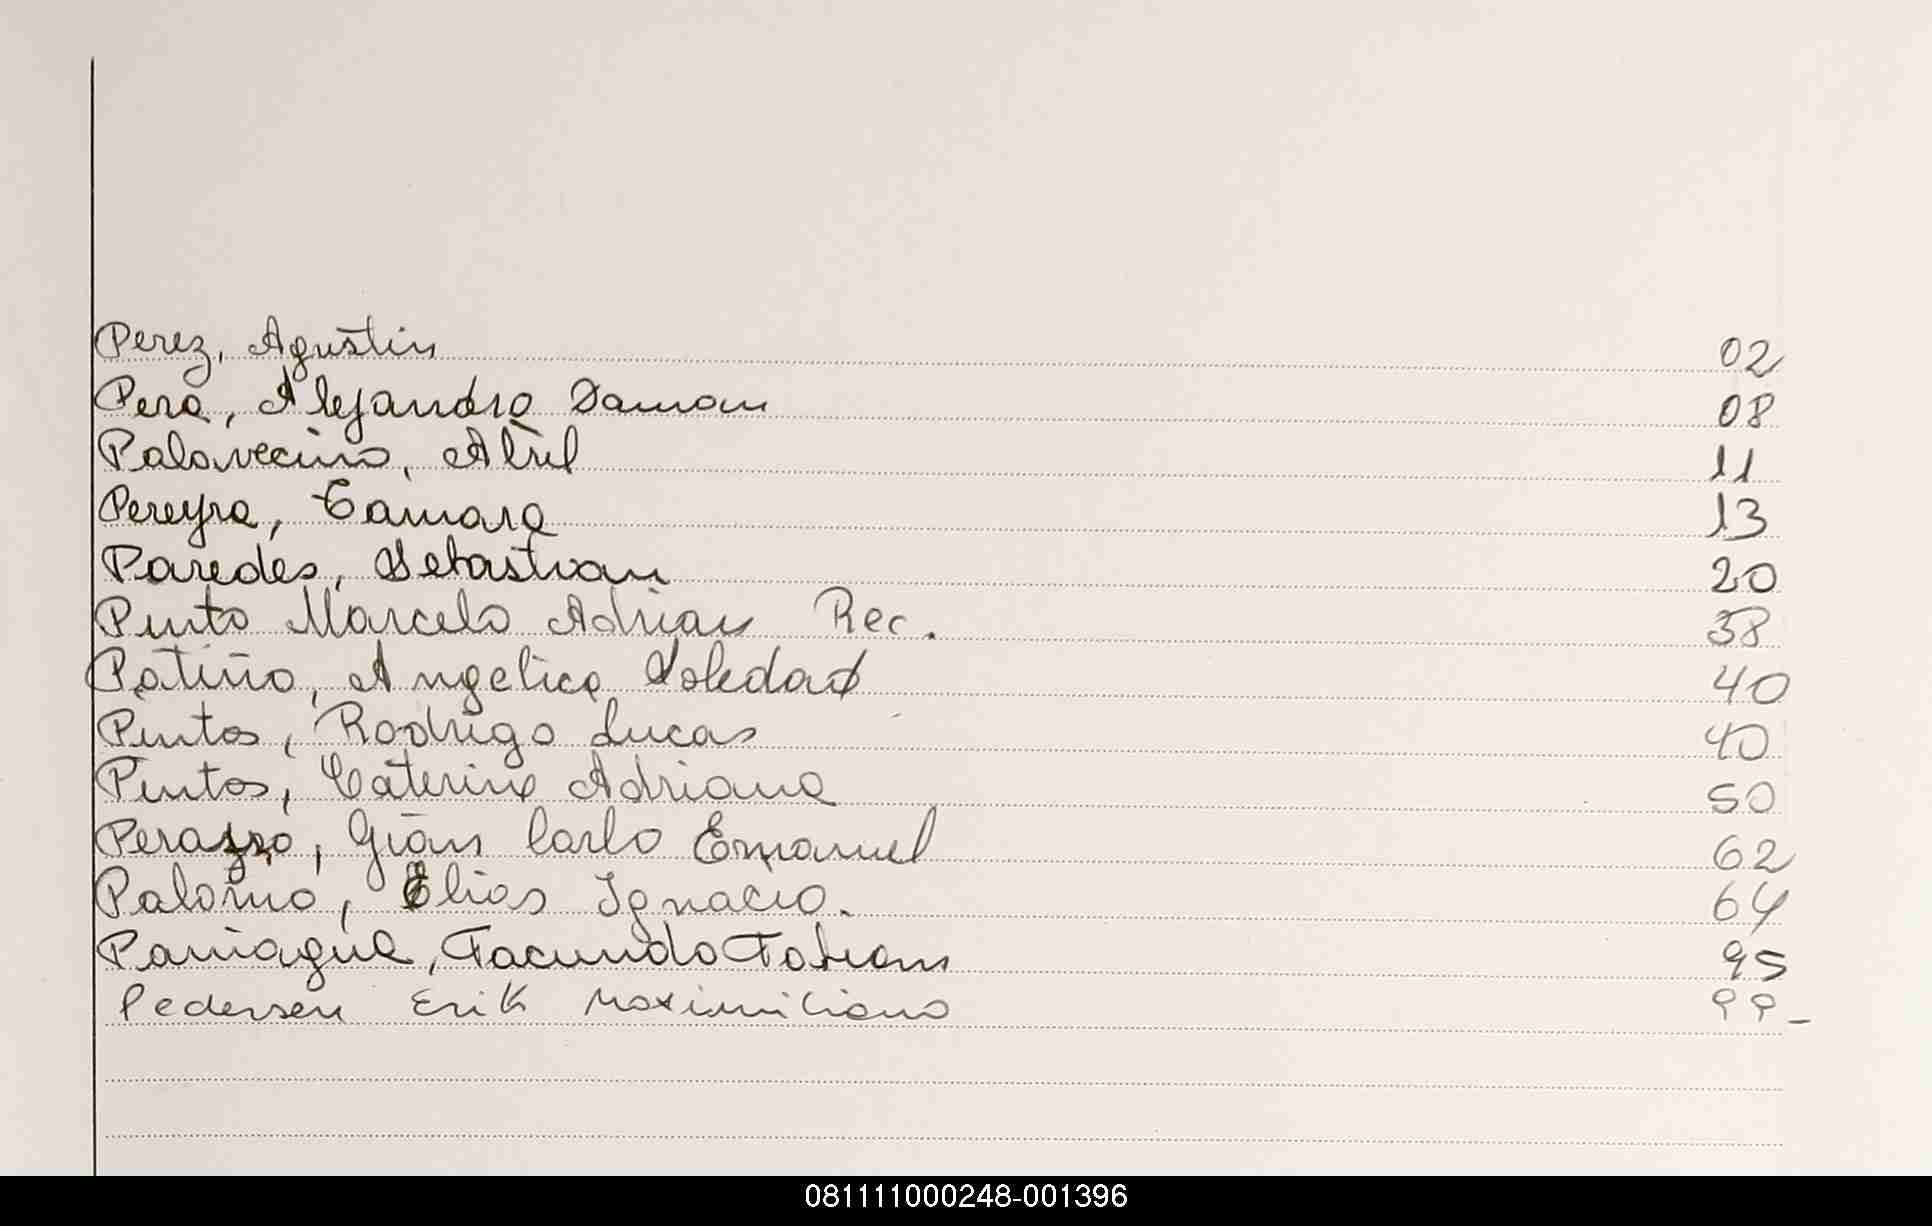 Perez, Agustin 02
Pera, Alejandro Damian 08
Palavecino, Abril 11
Pereyra, Tamara 13
Paredes, Sebastian 20
Pinto Marcelo Adrian Rec. 38
Patiño, Angelica Soledad 40
Pintos, Rodrigo Lucas 40
Pintos, Caterine Adriana 50
Perazzo, Gian Carlo Emanuel 62
Palomo, Elias Ignacio. 64
Paniagua, Facundo Fabian 95
Pedersen Erik Maximiliano 99-
081111000248-001396